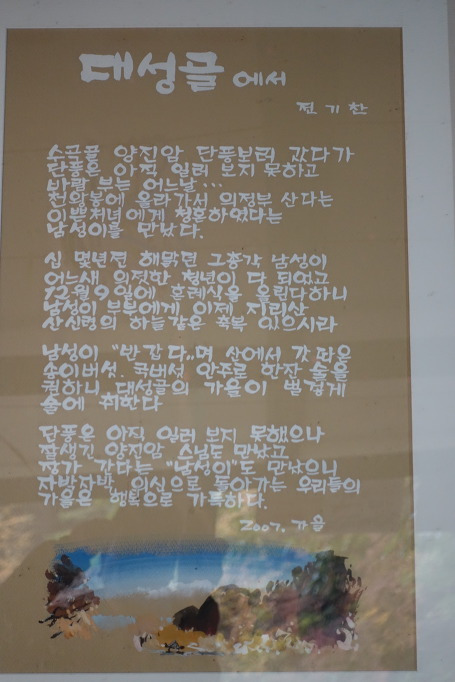 대성골에서
전기찬
양진암 단풍보러 갔다가
단풍은 아직 일러 보지 못하고
바람 부는 어느날...
천왕봉에 올라가서 의정부 산다는
이쁜처녀에게 청혼하였다는
남성이를 만났다.
십 몇년전 해맑던 그총각 남성이
어느새 의젓한 청년이 다 되었고
12월 9일에 혼례식을 올린다하니
남성이 부부에게 이제 지리산
산신령의 하늘같은 축복 있으시라
남성이 "반갑다..며 산에서 갓 따온
송이버섯. 국버섯 안주로 한잔 술을
권하니 대성골의 가을이 벌겋게
술에 취한다
단풍은 아직 일러 보지 못했으나
잘생긴 양진암 스님도 만났고
장가 간다는 "남성이"도 만났으니
자박자박 의식으로 돌아가는 우리들의
가을은 행복으로 가득하다.
2007. 가을